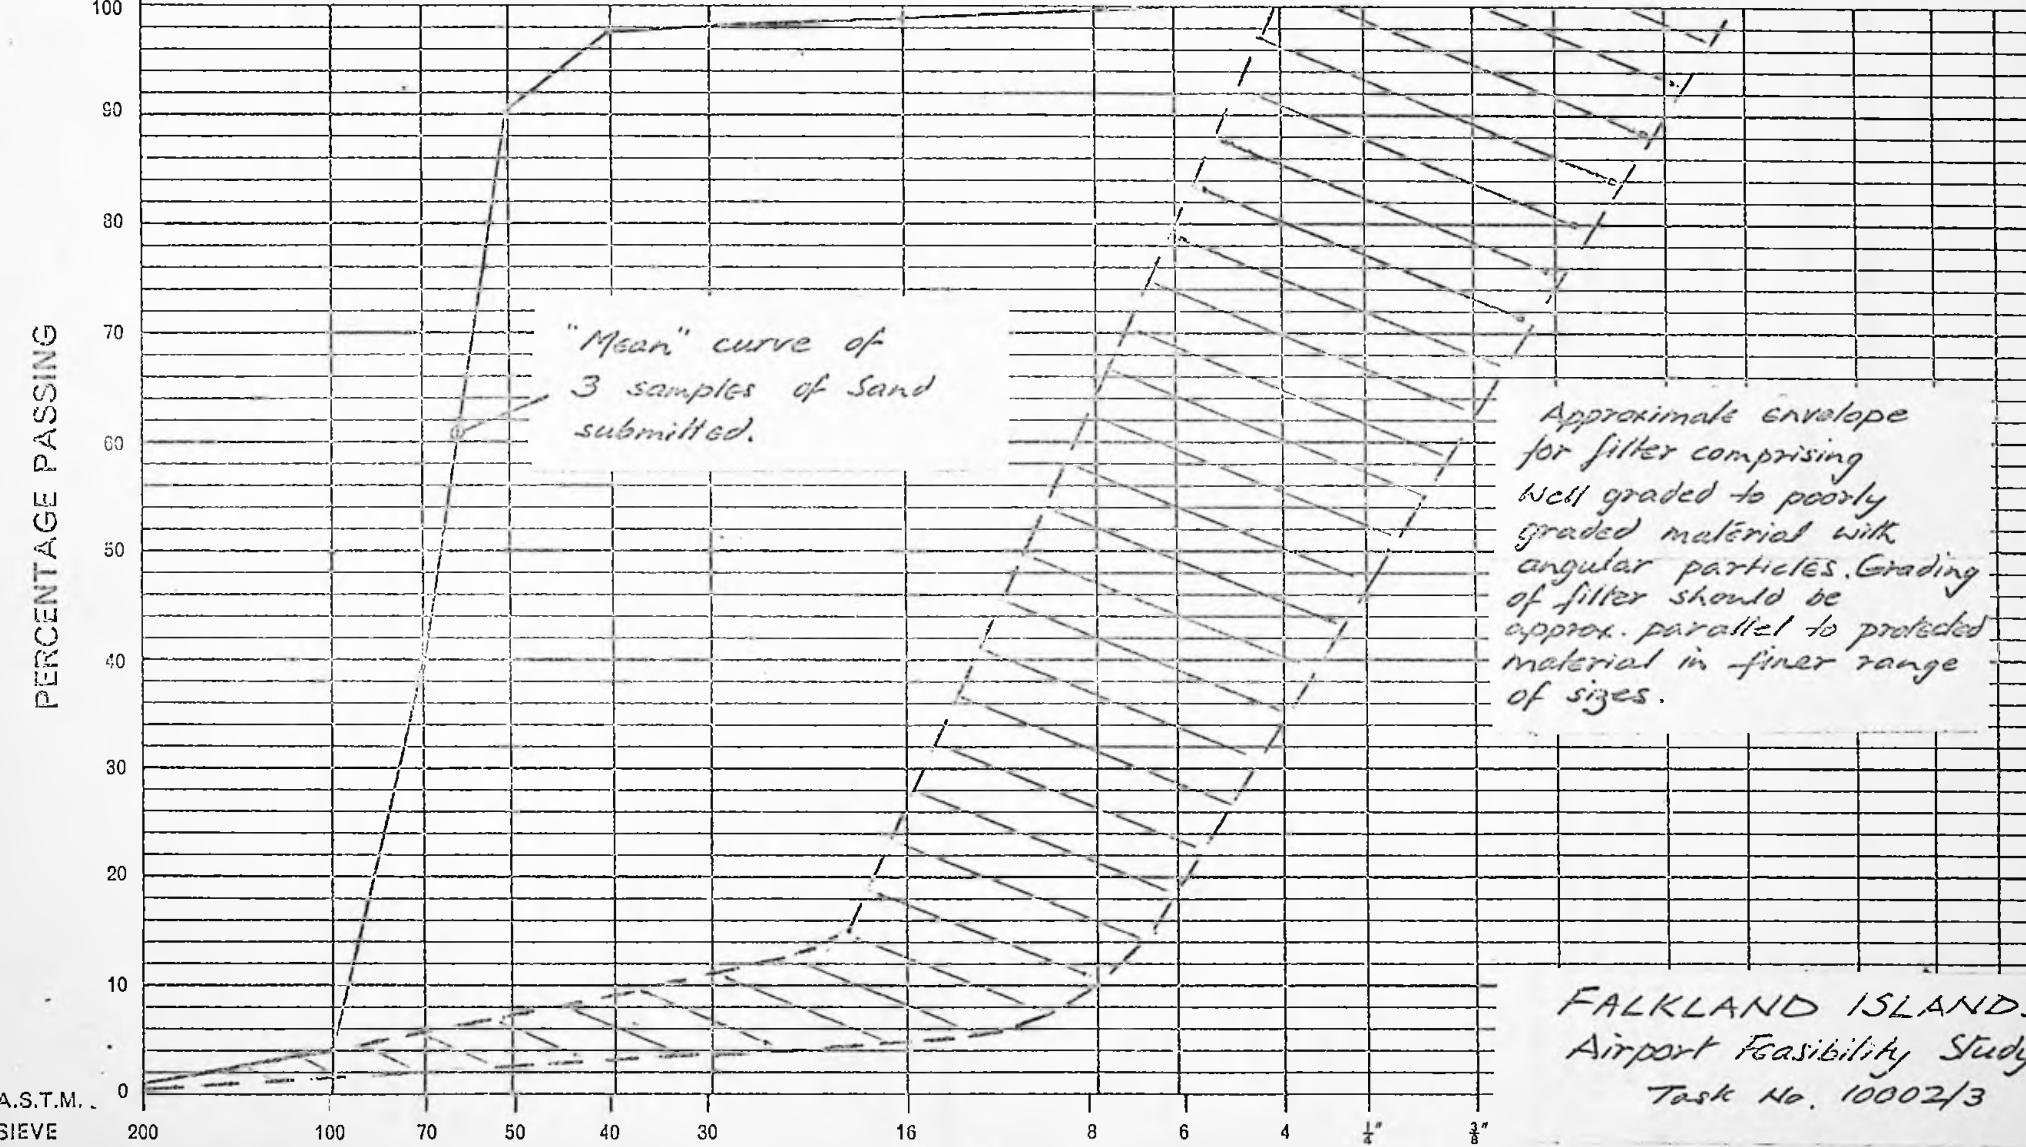 100
90
80
70
60
50
40
30
20
10
0
PERCENTAGE PASSING
"Mean" curve of
3 samples of Sand
submitted.
Approximate envelope
for filter comprising
Well graded to poorly
graded material with
angular particles. Grading
of filter should be
approx. parallel to protected
material in finer range
of sizes.
FALKLAND ISLAND
Airport Feasibility Study
Task No. 10002/3
A.S.T.M.
SIEVE 200 100 70 50 40 30 16 8 6 4 ¼" ⅜"